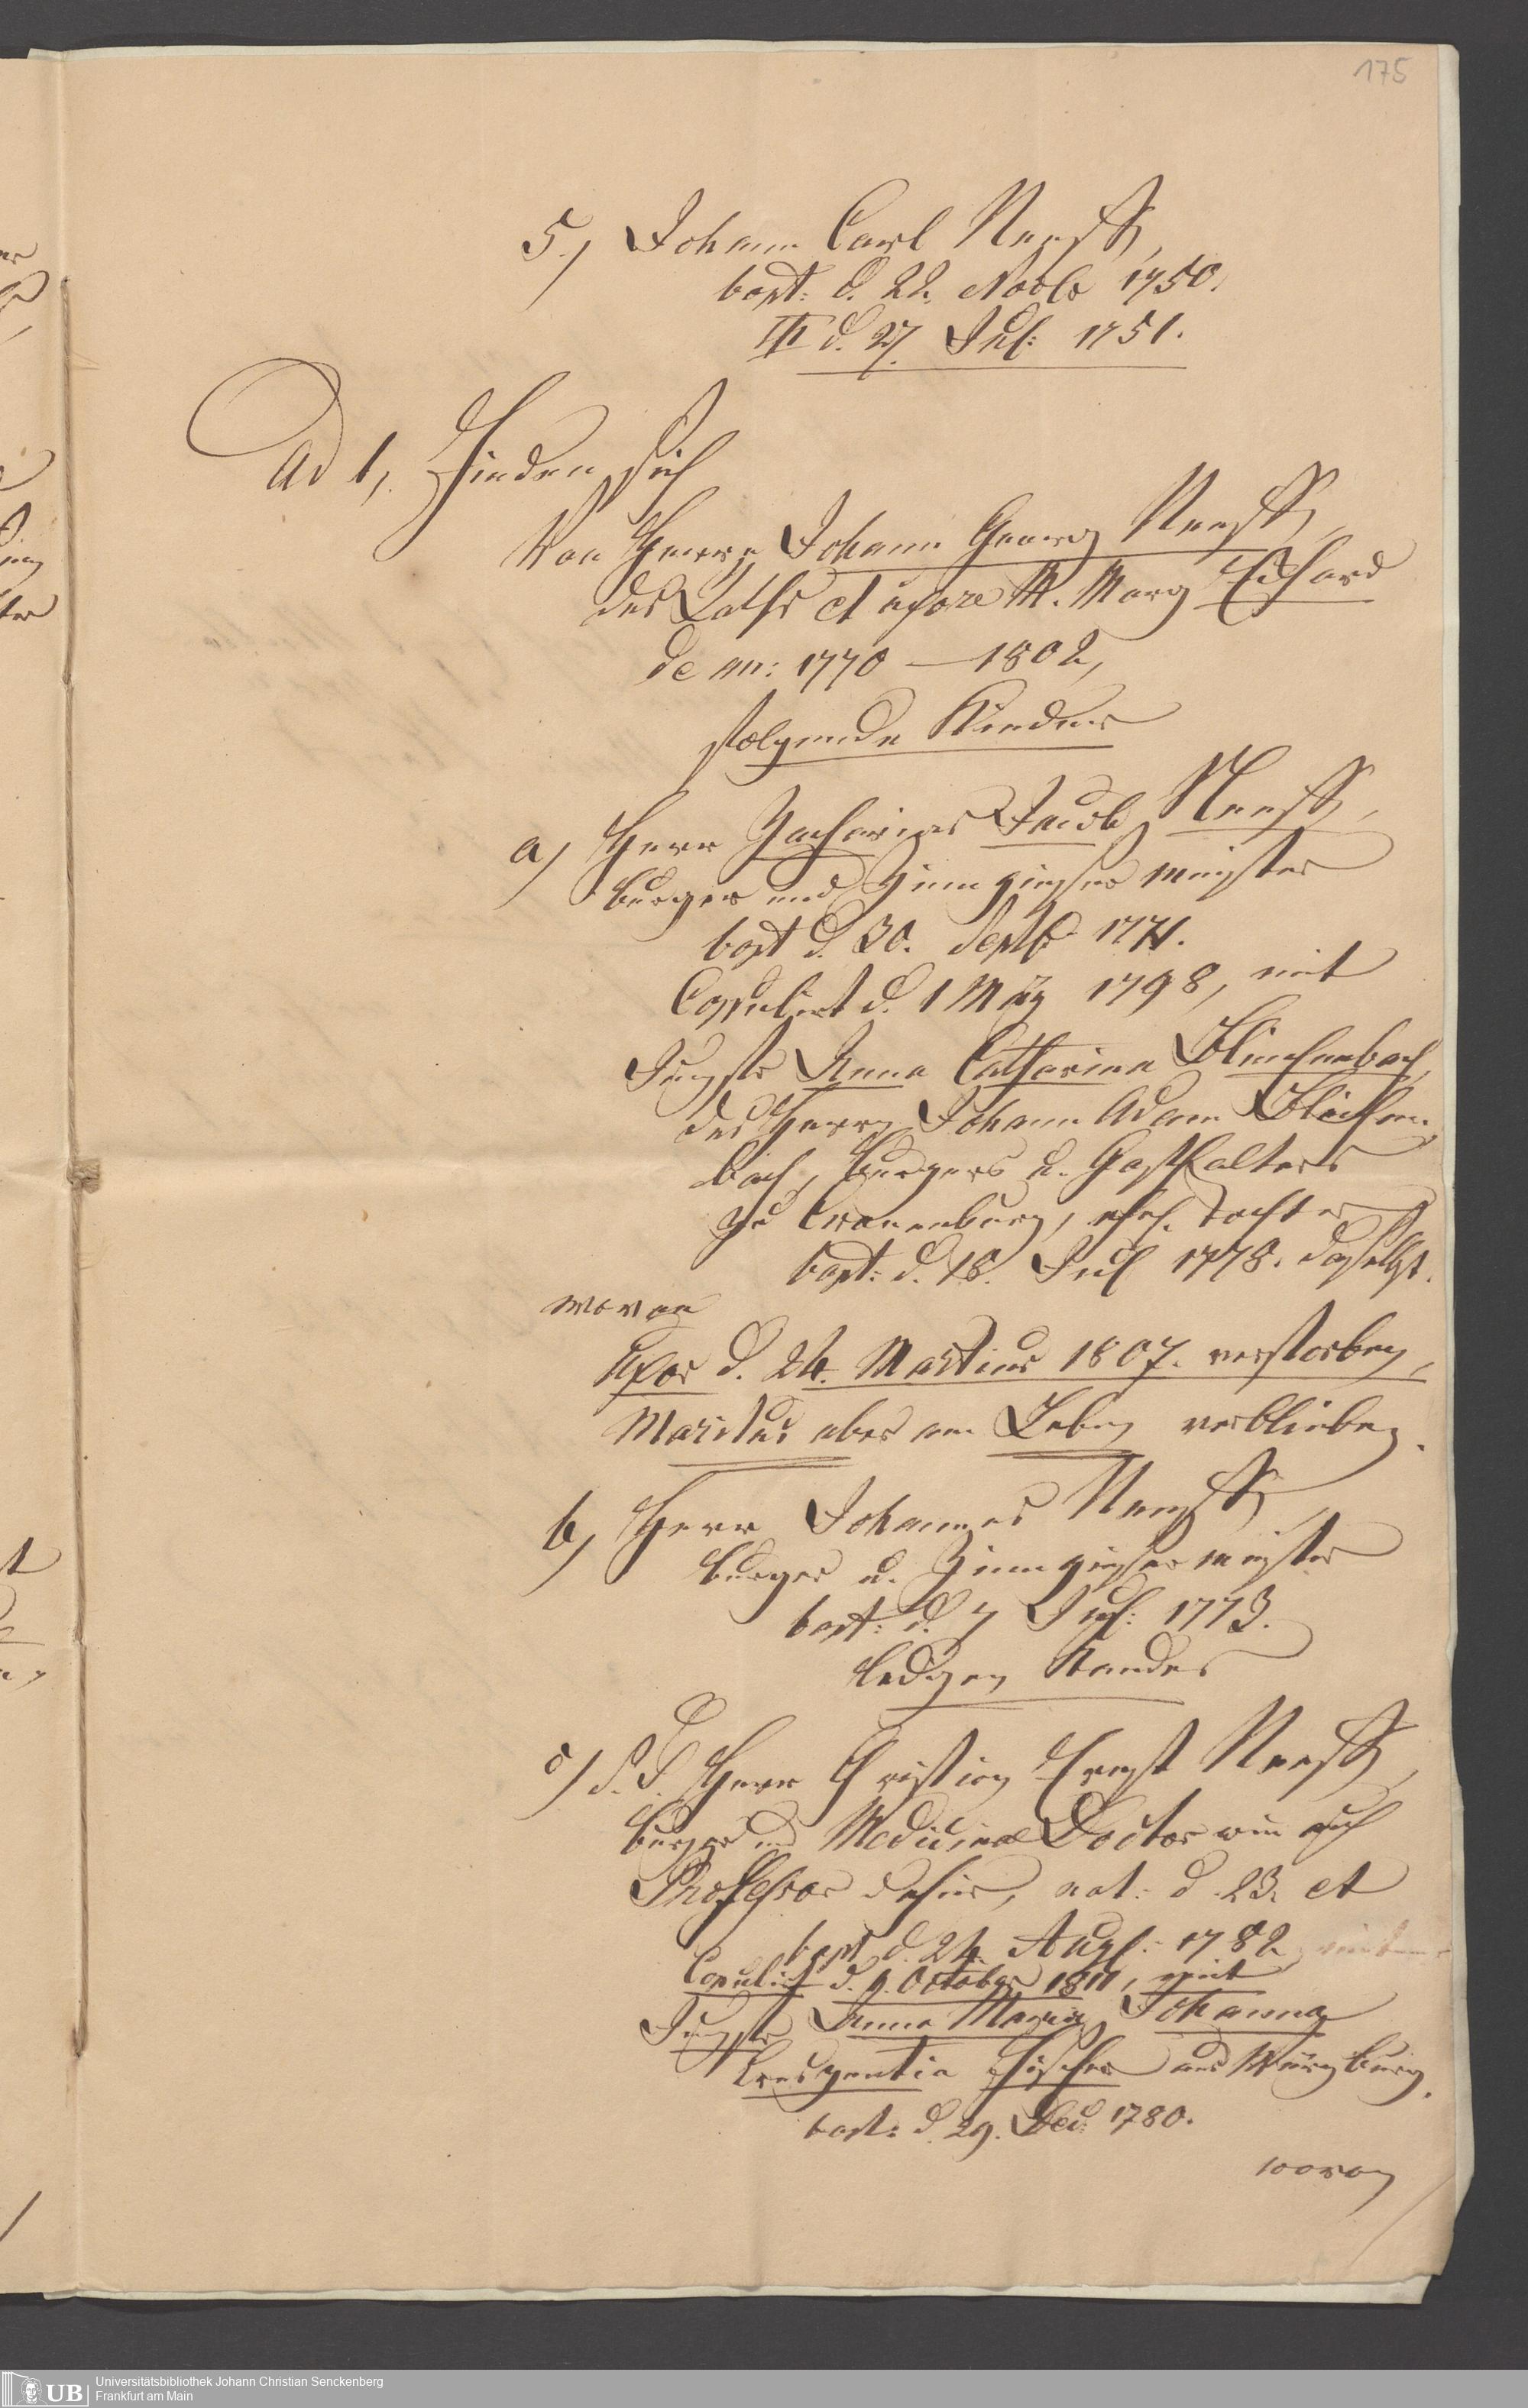 175
5.) Johann Carl Neeff,
bapt: d. 22. Novbr 1750.
d. 27. Jul: 1751.
Ad 1, Finden sich
Von Herrn Johann Georg Neeff,
des Raths et uxore M. Marg Eckhard
de an: 1770 — 1802,
folgende Kinder
a) Herr Zacharias Jacob Neeff,
burger und Zinngießer meister
bapt d. 30. Septbr 1771.
Copulirt d. 1 May 1798, mit
Jungfr Anna Catharina Bleichenbach,
des Herrn Johann Adam Bleichen
bach, Burgers u. Gasthalters
zu Cronenburg, ehel. Tochter
bapt: d. 18. Jul 1778. daselbst.
wovon
Uxor d. 24. Martius 1807. verstorben,
Maritus aber am Leben verblieben.
b) Herr Johannes Neeff,
burger u. Zinngießer meister
bapt: d. 7 Jul: 1773.
ledigen Standes
c) S. T. Herr Christian Ernst Neeff,
burger und Medicinae Doctor wie auch
Professor dahier, nat: d. 23. et
bapt d. 24. Aug: 1782
Copulirt d. 9. October 1811, mit
Jungfr Anna Maria Johanna
Crescentia Fischer aus Würzburg.
bapt: d. 29. Dec: 1780.
wovon
UB
Universitätsbibliothek Johann Christian Senckenberg
Frankfurt am Main